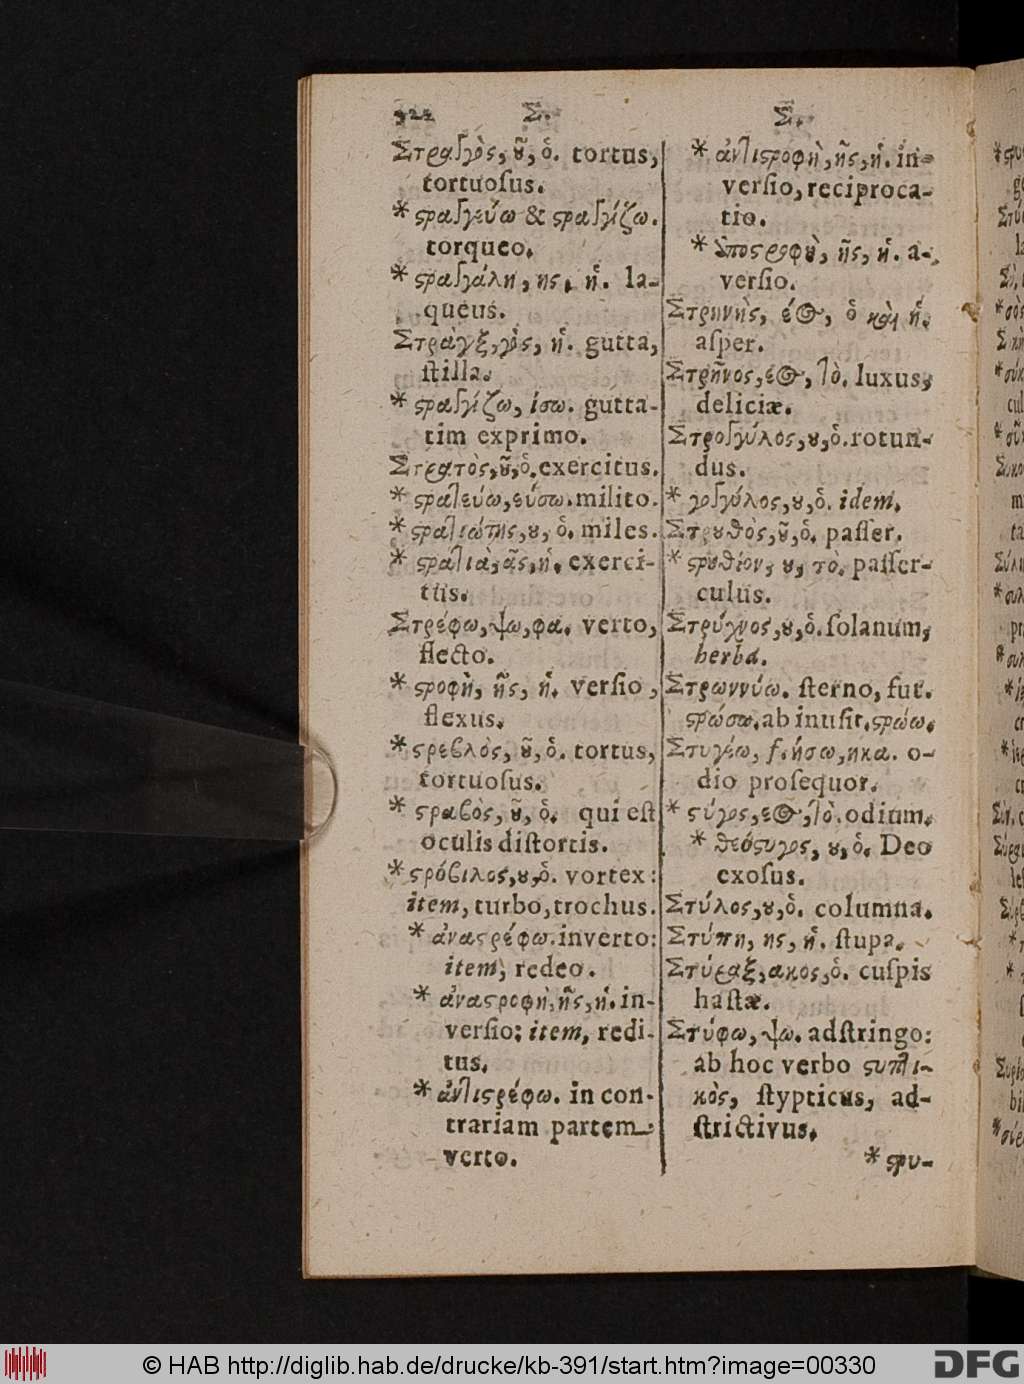 322 Σ. Σ.
Στραγγὸς, οῦ, ὁ. tortus,
tortuoſus.
* στραγγεύω & στραγγίζω.
torqueo.
* στραγγάλη, ης, ἡ. la-
queus.
Στράγξ, γὸς, ἡ. gutta,
ſtilla.
* στραγγίζω, ίσω. gutta-
tim exprimo.
Στρατὸς, οῦ, ὁ. exercitus.
* στρατεύω, εύσω. milito.
* στρατιώτης, ου, ὁ. miles.
* στρατιὰ, ᾶς, ἡ. exerci-
tus.
Στρέφω, ψω, φα. verto,
flecto.
* στροφὴ, ῆς, ἡ. verſio,
flexus.
* στρεβλὸς, οῦ, ὁ. tortus,
tortuoſus.
* στραβὸς, οῦ, ὁ. qui eſt
oculis diſtortis.
* στρόβιλος, ου, ὁ. vortex:
item, turbo, trochus.
* ἀναστρέφω. inverto:
item, redeo.
* ἀναστροφὴ, ῆς, ἡ. in-
verſio: item, redi-
tus.
* ἀντιστρέφω. in con-
trariam partem
verto.
* ἀντιστροφὴ, ῆς, ἡ. in-
verſio, reciproca-
tio.
* ὑποστροφὴ, ῆς, ἡ. a-
verſio.
Στρηνὴς, έος, ὁ καὶ ἡ.
aſper.
Στρῆνος, εος, τὸ. luxus,
deliciæ.
Στρογγύλος, ου, ὁ. rotun-
dus.
* γογγύλος, ου, ὁ. idem.
Στρουθὸς, οῦ, ὁ. paſſer.
* στρουθίον, ου, τὸ. paſſer-
culus.
Στρύχνος, ου, ὁ. ſolanum,
herba.
Στρωννύω. ſterno, fut.
στρώσω. ab inuſit. στρώω.
Στυγέω, f. ήσω, ηκα. o-
dio proſequor.
* στύγος, εος, τὸ. odium.
* θεόστυγος, ου, ὁ. Deo
exoſus.
Στύλος, ου, ὁ. columna.
Στύπη, ης, ἡ. ſtupa.
Στύραξ, ακος, ὁ. cuſpis
haſtæ.
Στύφω, ψω. adſtringo:
ab hoc verbo στυπτι-
κὸς, ſtypticus, ad-
ſtrictivus.
* στρυ-
© HAB http://diglib.hab.de/drucke/kb-391/start.htm?image=00330
DFG